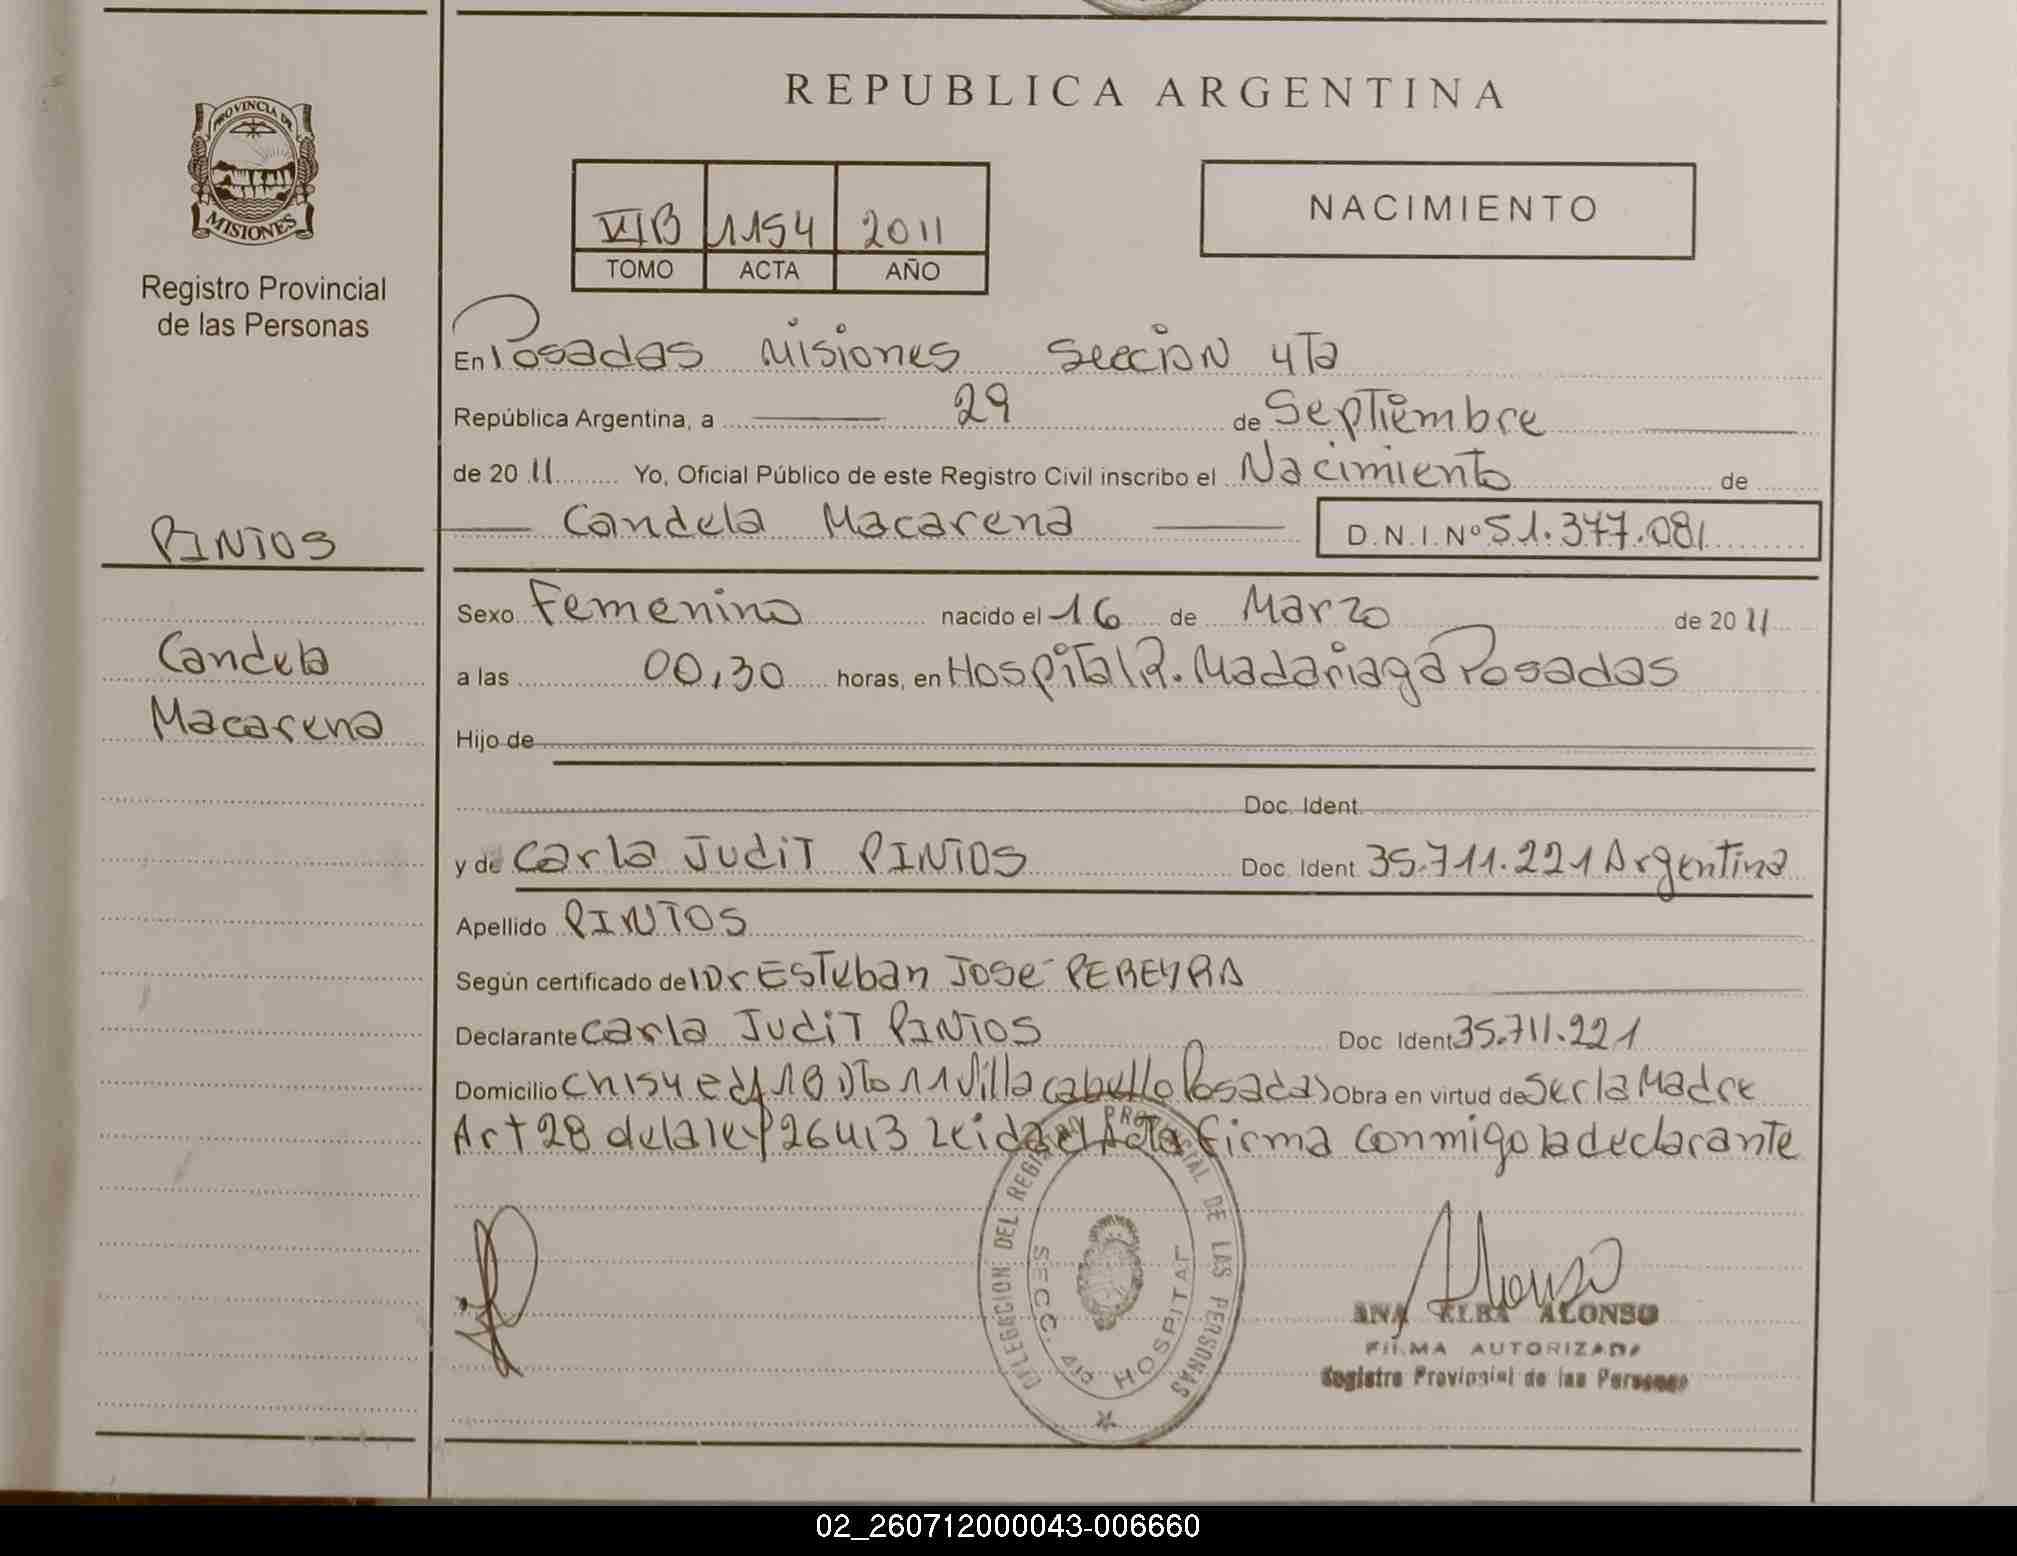 PROVINCIA DE
MISIONES
Registro Provincial
de las Personas
PINTOS
Candela
Macarena
REPUBLICA ARGENTINA
VIB 1154 2011
TOMO ACTA AÑO
NACIMIENTO
En Posadas Misiones Sección 4Ta
República Argentina, a 29 de Septiembre
de 2011 Yo, Oficial Público de este Registro Civil inscribo el Nacimiento de
Candela Macarena D.N.I. Nº 51.377.081
Sexo Femenino nacido el 16 de Marzo de 2011
a las 00,30 horas, en Hospital R. Madariaga Posadas
Hijo de
Doc. Ident.
y de Carla Judit PINTOS Doc. Ident 35.711.221 Argentina
Apellido PINTOS
Según certificado del Dr Esteban José PEREYRA
Declarante Carla Judit PINTOS Doc Ident 35.711.221
Domicilio Ch154 edf 18 Dto 11 Villa Cabello Posadas Obra en virtud de Ser la Madre
Art 28 de la ley 26413 Leida el Acta firma conmigo la declarante
DELEGACION DEL REGISTRO PROVINCIAL DE LAS PERSONAS
SECC. 4ta HOSPITAL
Alonso
ANA ELBA ALONSO
FIRMA AUTORIZADA
Registro Provincial de las Personas
02_260712000043-006660